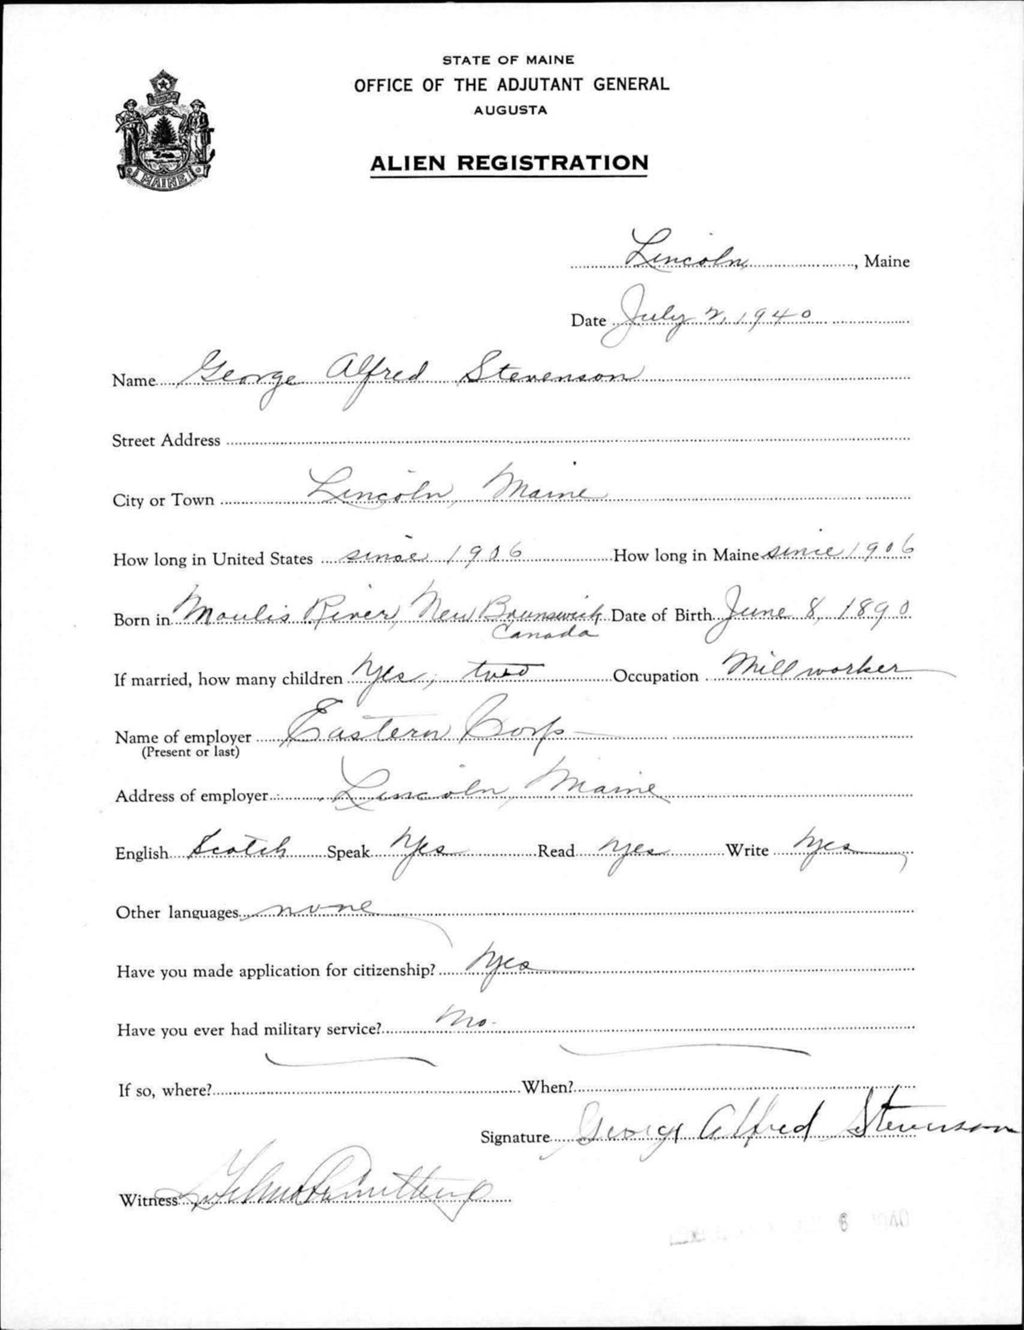 STATE OF MAINE
OFFICE OF THE ADJUTANT GENERAL
AUGUSTA
MAINE
ALIEN REGISTRATION
Lincoln, Maine
Date July 2, 1940
Name George Alfred Stevenson
Street Address
City or Town Lincoln, Maine
How long in United States since 1906 How long in Maine since 1906
Born in Moulis River, New Brunswick, Date of Birth June 8, 1890
Canada
If married, how many children Yes, two Occupation Mill worker
Name of employer Eastern Corp
(Present or last)
Address of employer Lincoln, Maine
English Scotch Speak Yes Read Yes Write Yes
Other languages none
Have you made application for citizenship? Yes
Have you ever had military service? No.
If so, where? When?
Signature George Alfred Stevenson
Witness